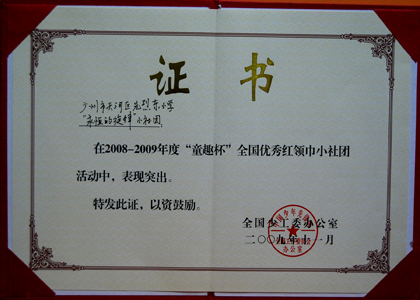 证 书
广州市天河区先烈东小学
"永恒的旋律"小社团
在2008-2009年度“童趣杯”全国优秀红领巾小社团
活动中，表现突出。
特发此证，以资鼓励。
全国少工委办公室
二〇〇九年十一月
办公室